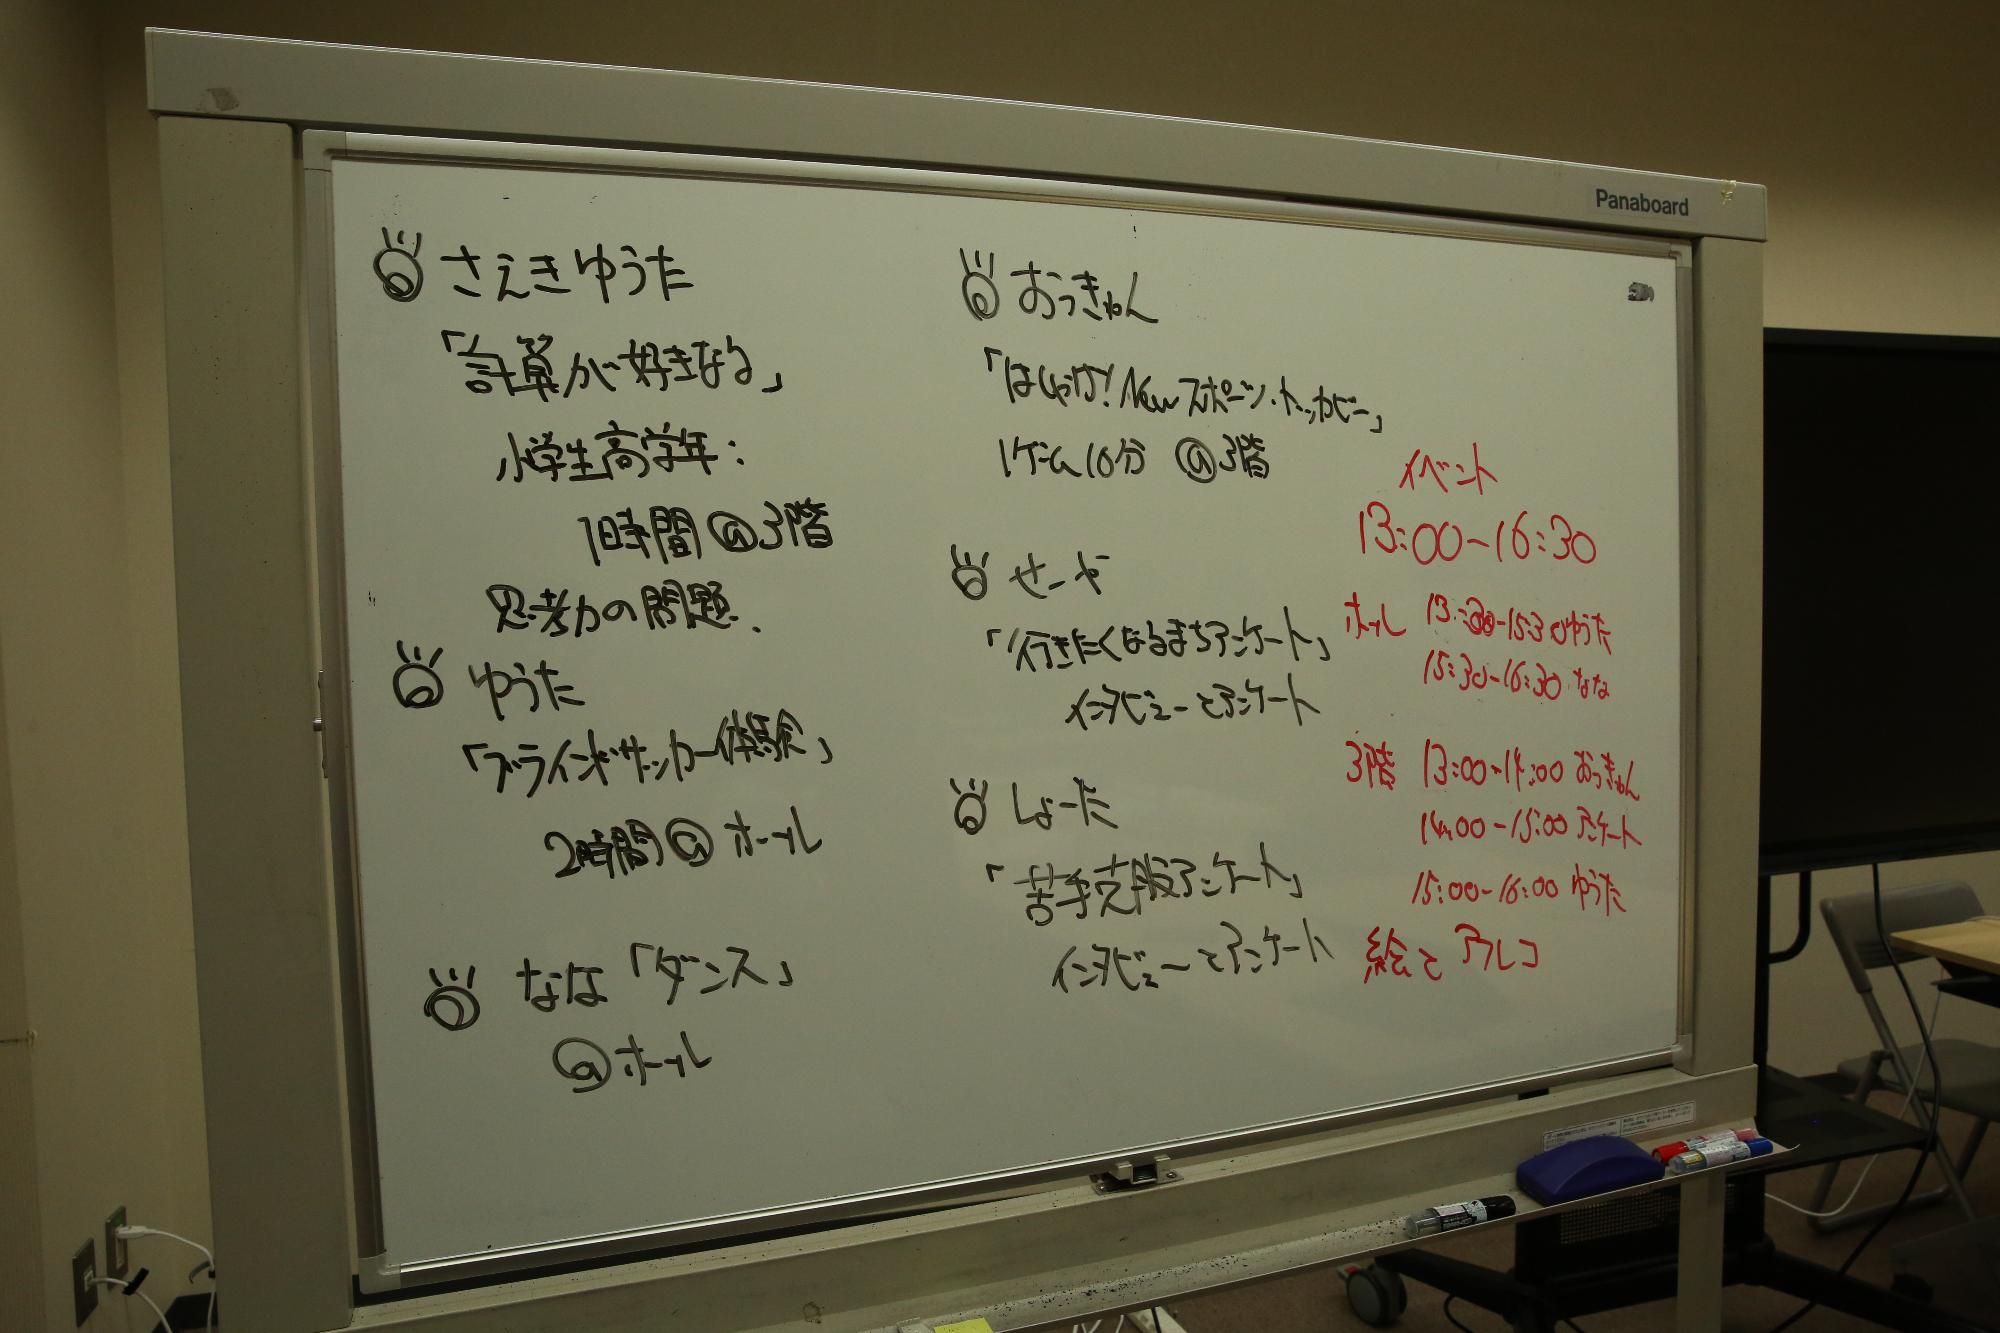 Panaboard
さえきゆうた
「計算が好きなる」
小学生高学年:
1時間@3階
思考力の問題.
ゆうた
「ブラインドサッカー体験」
2時間@ホール
なな「ダンス」
@ホール
おっきゃん
Newスポーツ・
1ゲーム10分 @3階
せーや
「行きたくなるまちアンケート」
インタビューとアンケート
しょーた
「苦手克服アンケート」
インタビューとアンケート
イベント
13:00-16:30
ホール 13:30-15:30ゆうた
15:30-16:30 なな
3階 13:00-14:00 おっきゃん
14:00-15:00 アンケート
15:00-16:00 ゆうた
絵とアフレコ